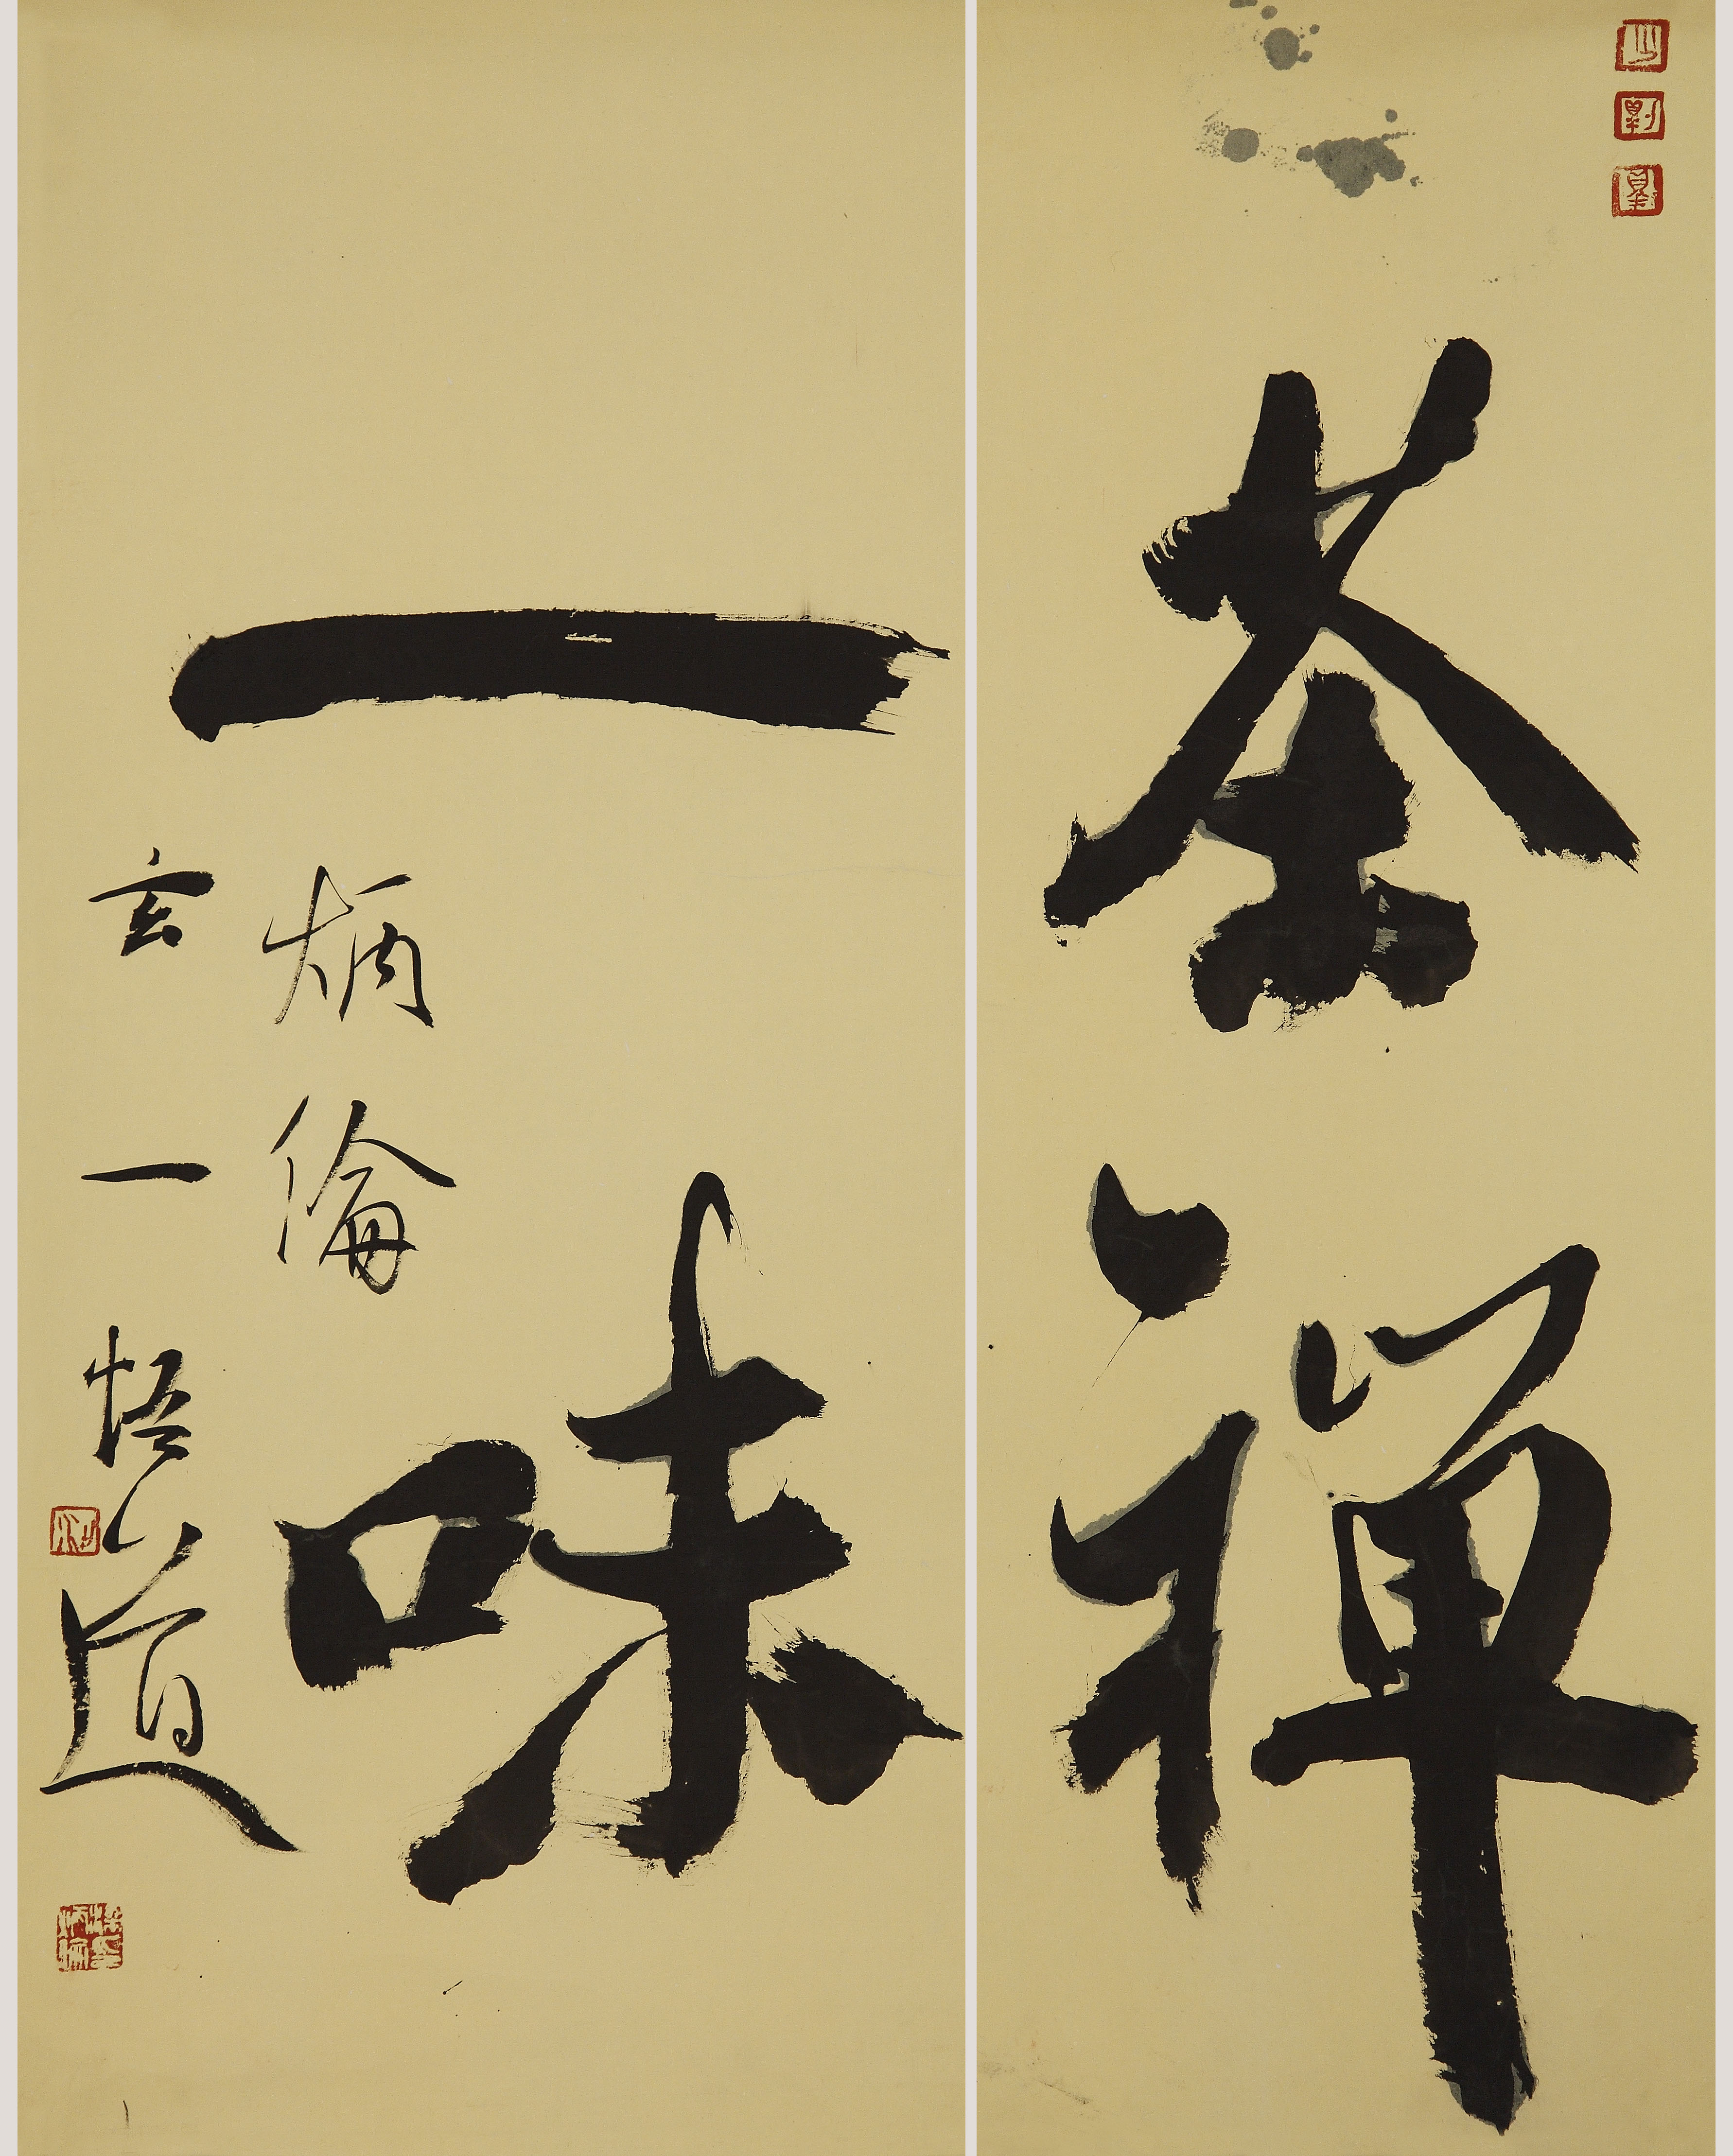 茶禪
一味
炳倫
玄一悟道